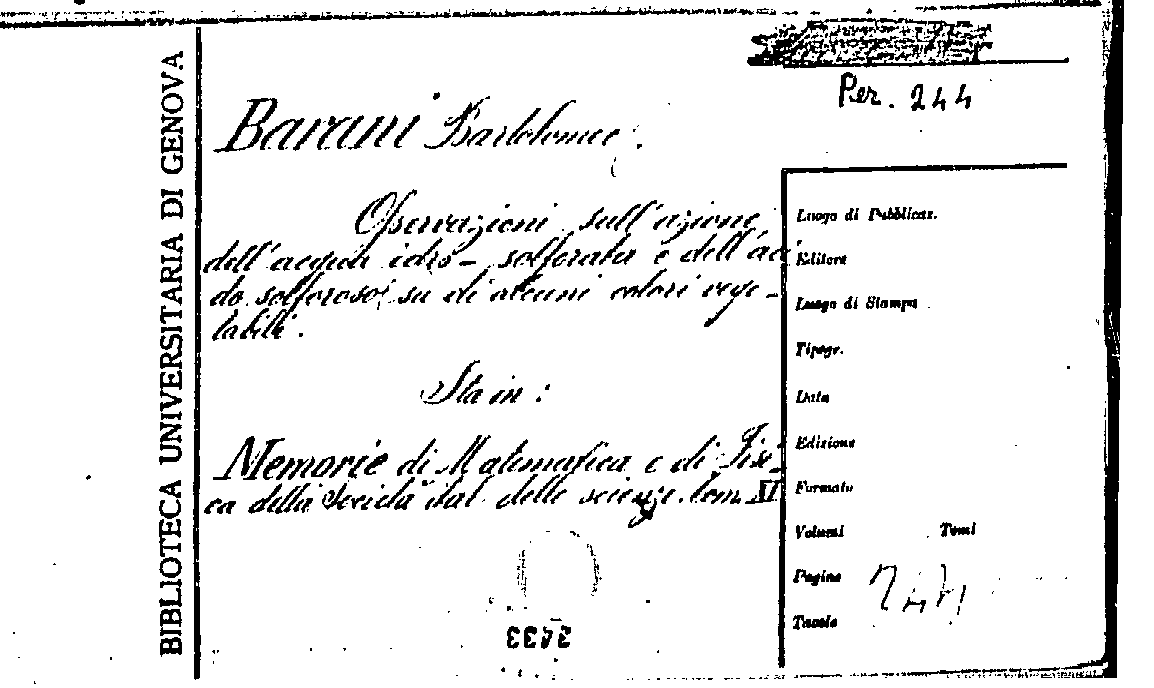 BIBLIOTECA UNIVERSITARIA DI GENOVA
Per. 244
Barani Bartolomeo.
Osservazioni sull'azione
dell'acqua idro- solforata e dell'aci
do solforoso su di alcuni colori vege-
tabili.
Sta in:
Memorie di Matematica e di Fisi-
ca della Società ital. delle scienze. tom. XI
Luogo di Pubblicaz.
Editore
Luogo di Stampa
Tipogr.
Data
Edizione
Formato
Volumi Tomi
Pagine
Tavole